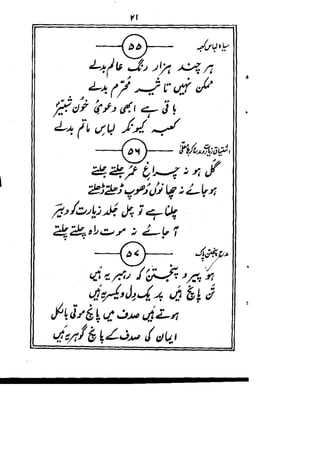 ۲۱
سیاہ لباس کعبہ
۵۵
ہر چند ہزار رنگ عالم بدلے
ممکن نہیں تا شیعہ محرم بدلے
باقی ہے ابھی دعویٔ خون شبیرؑ
کعبہ کیونکر لباس ماتم بدلے
اشتیاق زیارت
۵۶
گل ہو نہ چراغ عمر جلتے جلتے
ہو جائے نہ چھاؤں دھوپ ڈھلتے ڈھلتے
چلنا ہے تو چل جلد زیارت کو دبیرؔ
آ جائے نہ موت راہ چلتے چلتے
مدح پنجتن پاک
۵۷
ہو پیرو پنجتن کہ رہبر یہ ہیں
تن پانچ ہیں پر یک دل و یکسر یہ ہیں
ہوتے ہیں صدف میں پانچ موتی بالکل
ایمان کی صدف کے پانچ گوہر یہ ہیں